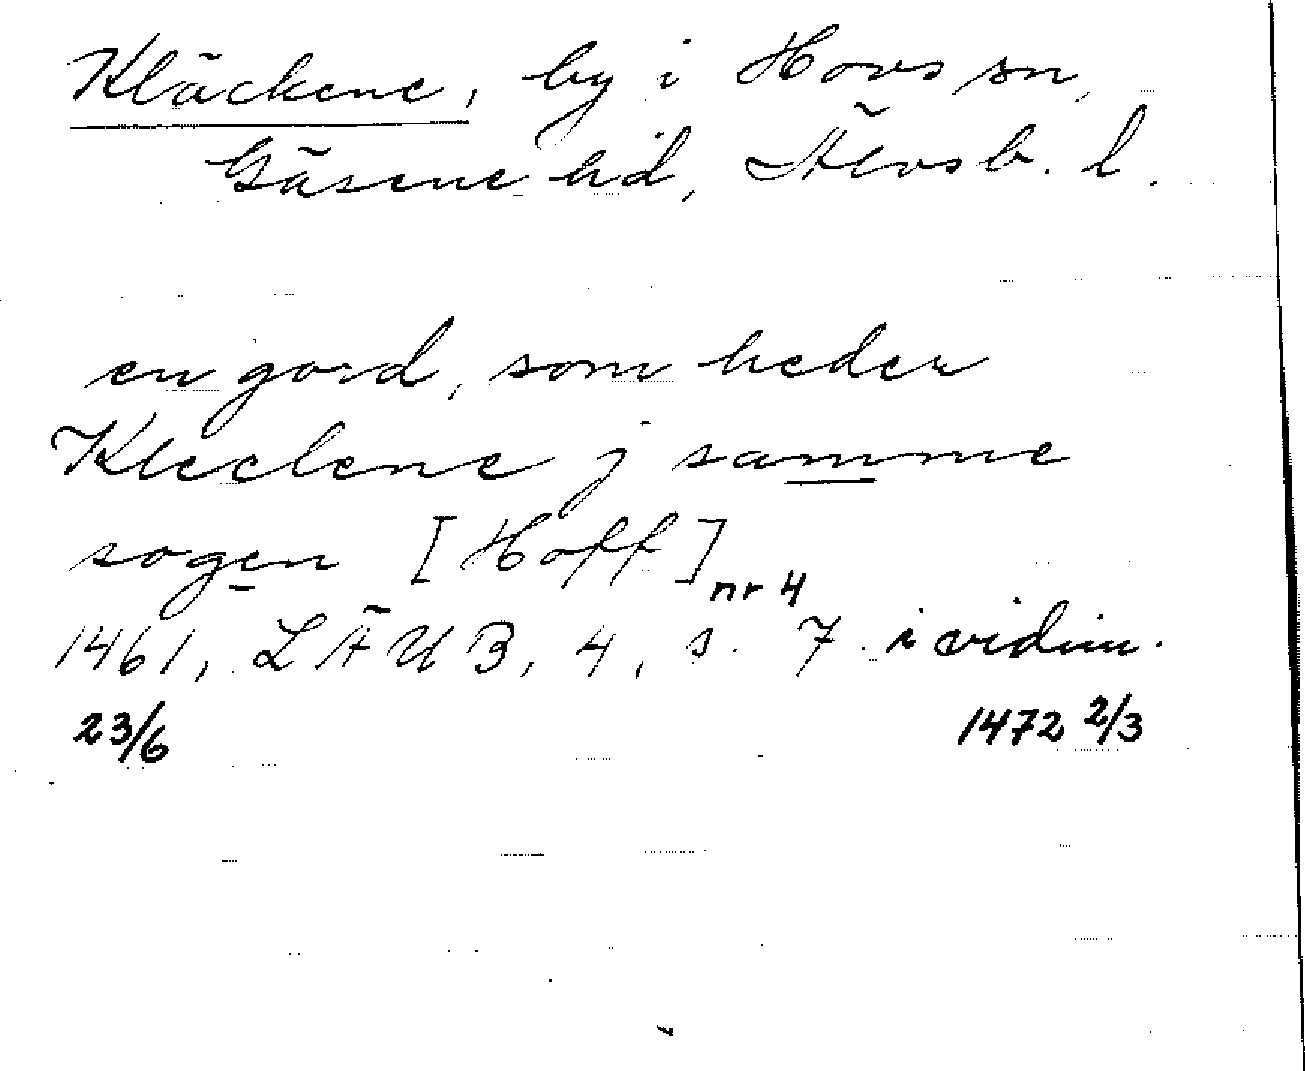 Kläckene, by i Hovs sn,
Gäsene hd, Älvsb. l.
en gord, som heder
Kleclene j samme
sogen [Hoff]
nr 4
1461, LÄUB, 4, s. 7. i vidim.
23/6 1472 2/3